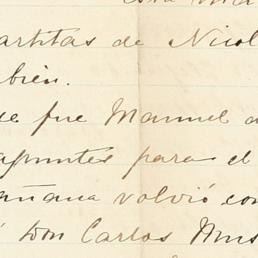 artitas de Nicol
bién.
ue fue Manuel a
apuntes para el
añana volvió con
Don Carlos Mus